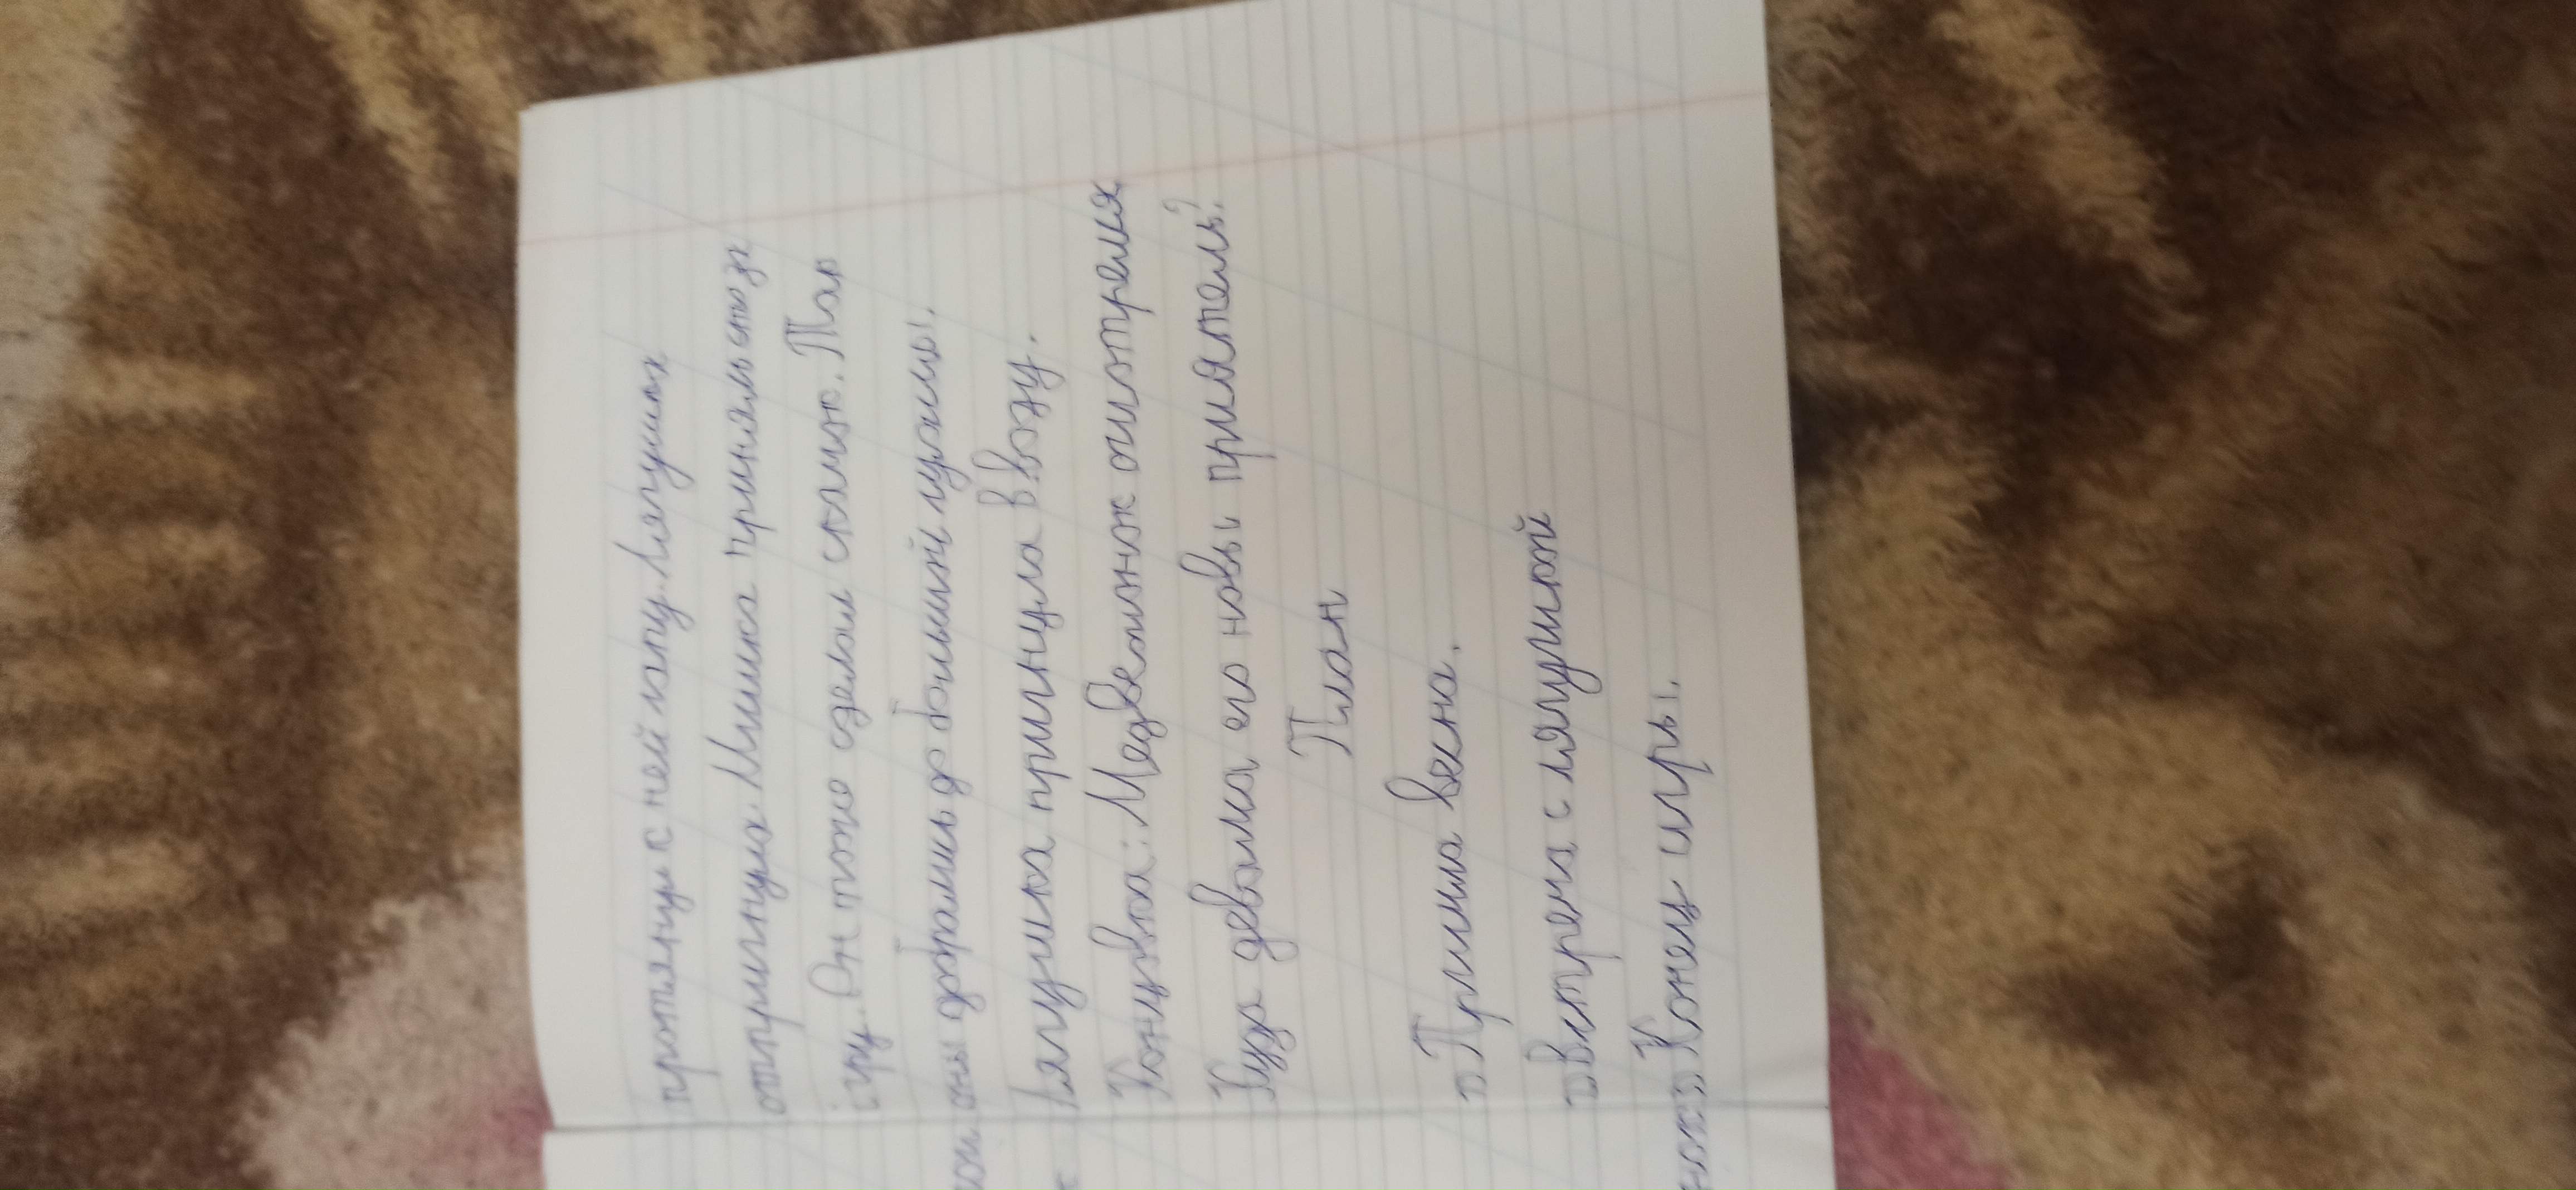 протянул с ней лапу. Лягушка
отпригнула. Мишка принял это за
игру. Он тоже сделал скачок. Так
они добрались до большой лужи.
Лягушка пригнула в воду.
Концовка: Медвежонок смотрел
Куда девалма его новы приятель?
План
1) Пришла весна.
2) встреча с лягушкой
3) Конец игры.